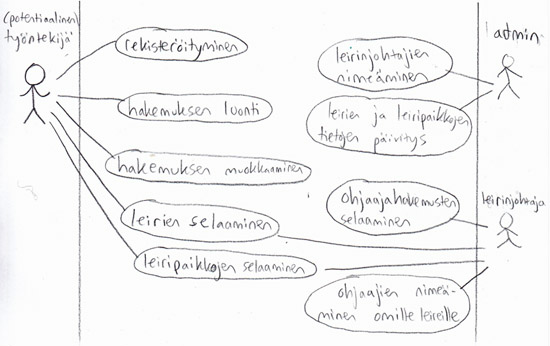 (potentiaalinen)
työntekijä
rekisteröityminen
hakemuksen luonti
hakemuksen muokkaaminen
leirien selaaminen
leiripaikkojen selaaminen
admin
leirinjohtajien
nimeäminen
leirien ja leiripaikkojen
tietojen päivitys
leirinjohtaja
ohjaajahakemusten
selaaminen
ohjaajien nimeä-
minen omille leireille